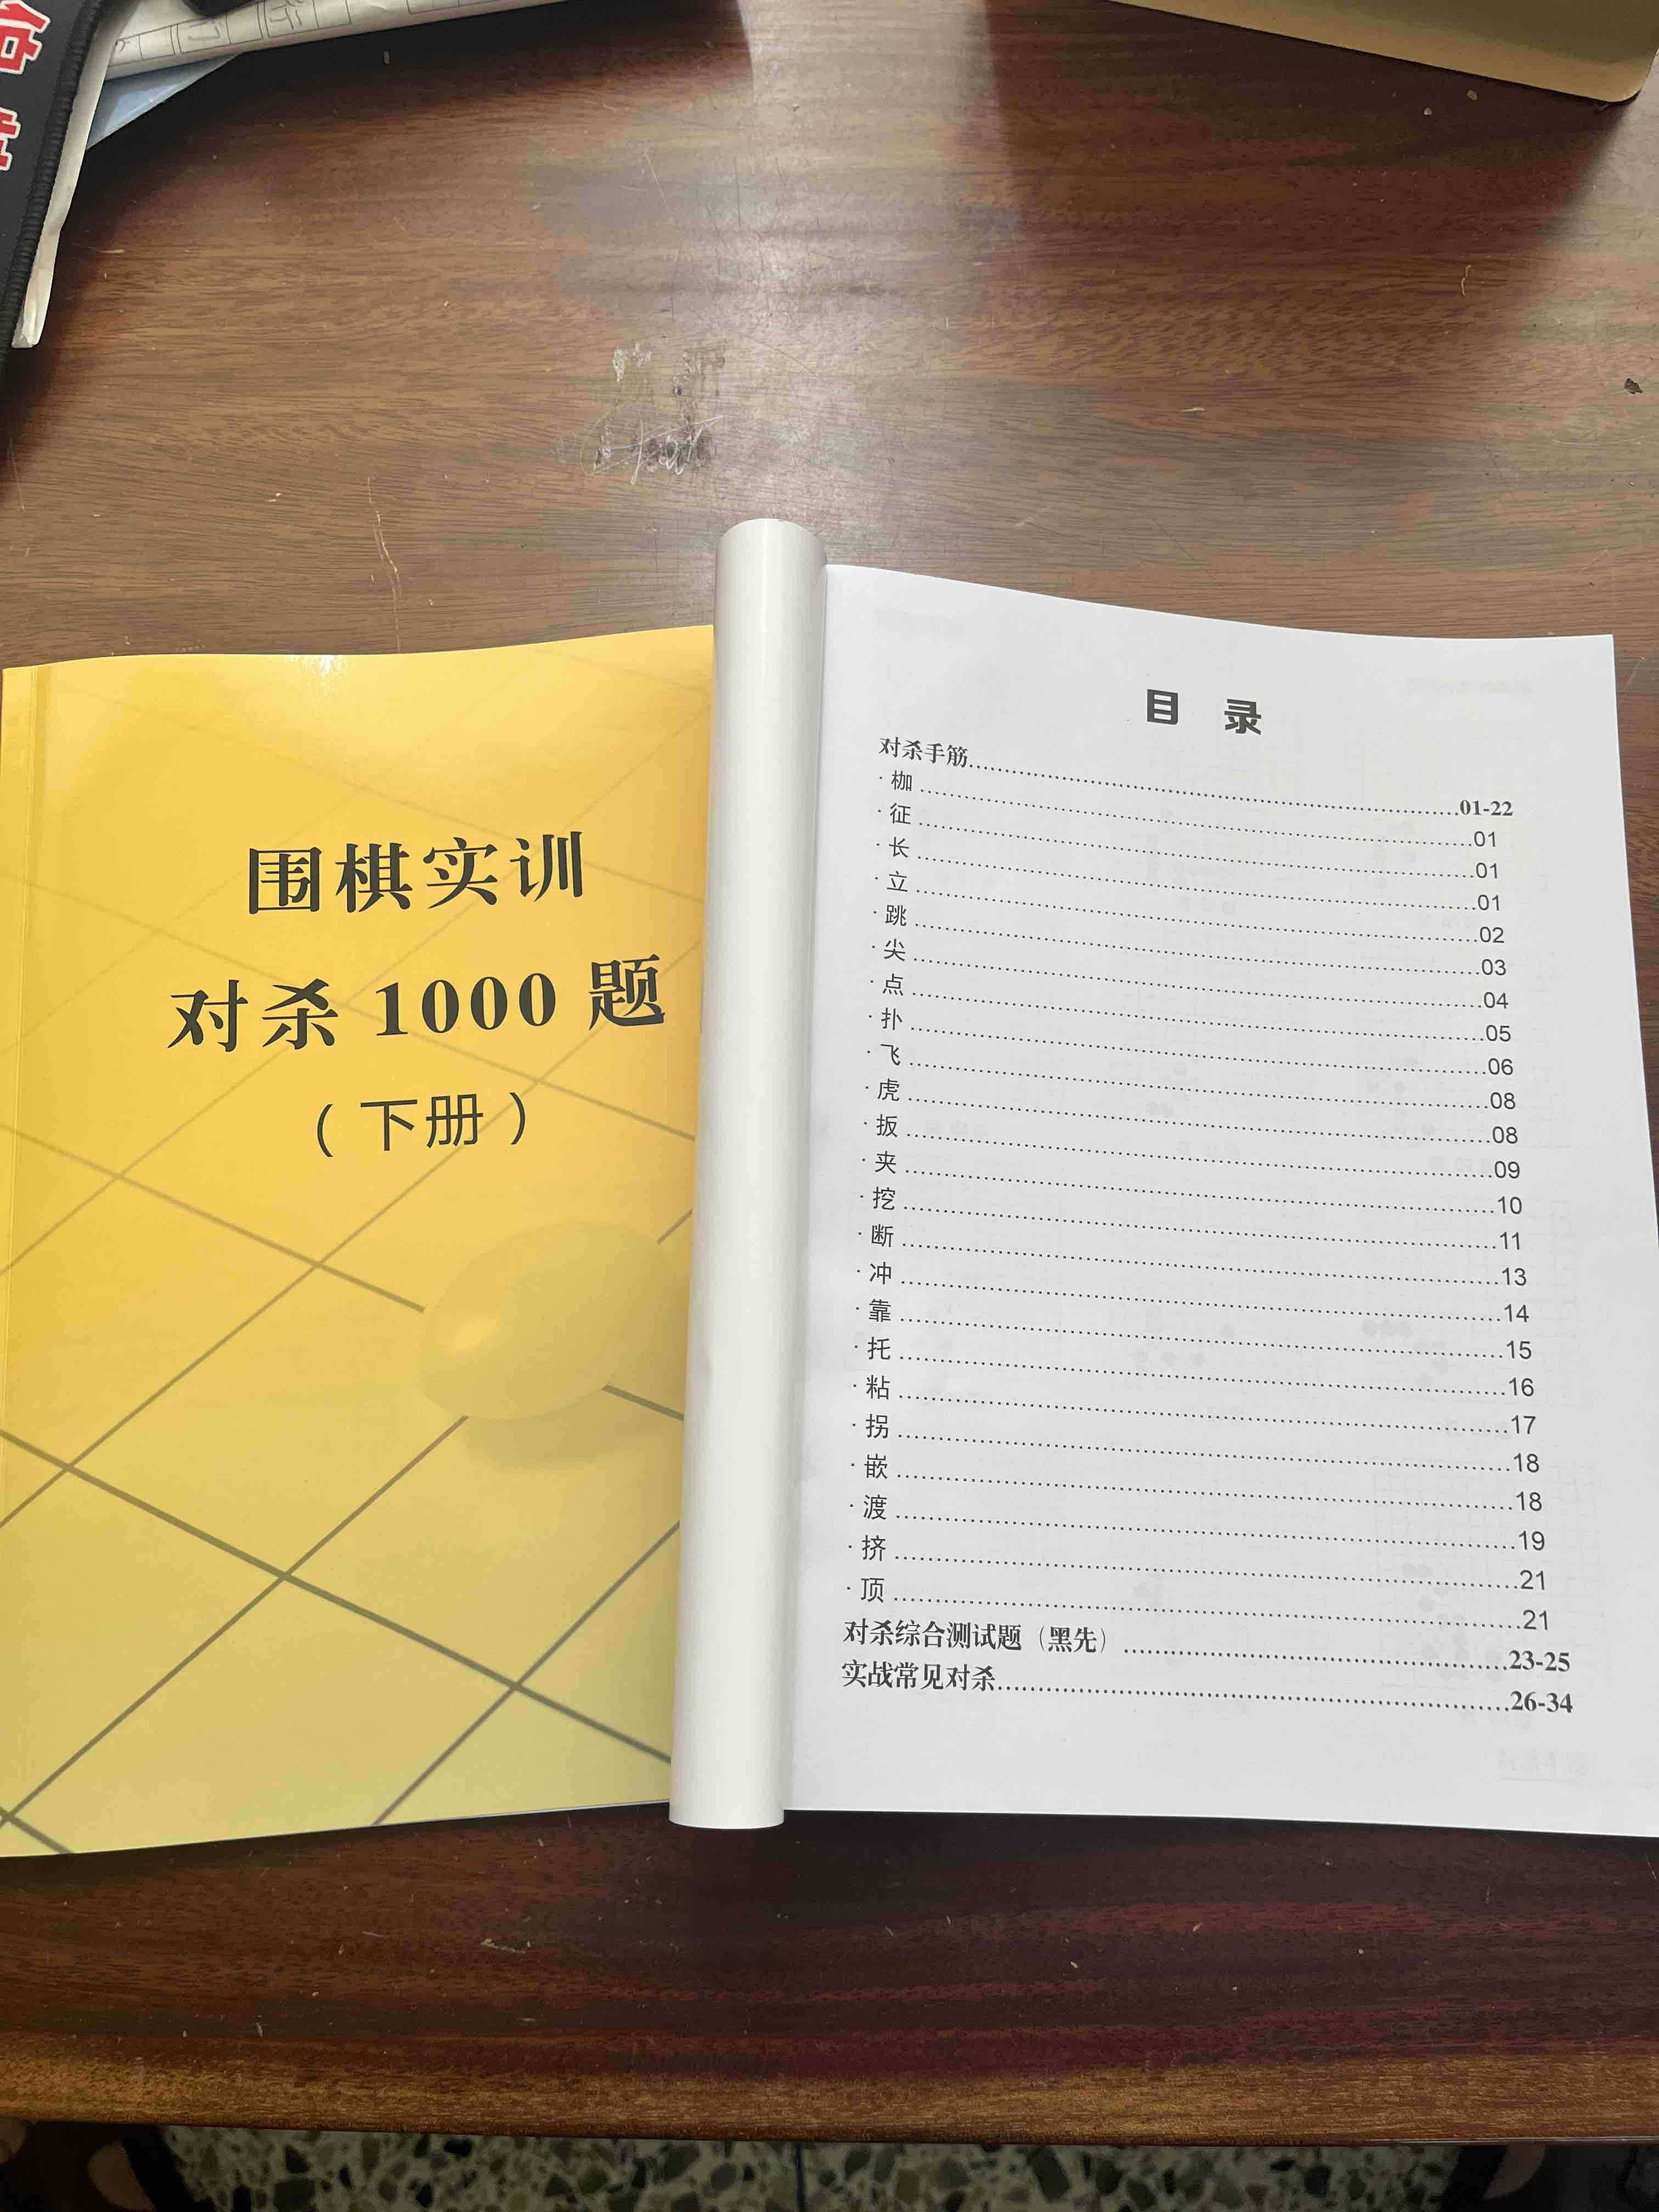 围棋实训
对杀 1000 题
（下册）
目 录
对杀手筋......01-22
· 枷......01
· 征......01
· 长......01
· 立......02
· 跳......03
· 尖......04
· 点......05
· 扑......06
· 飞......08
· 虎......08
· 扳......09
· 夹......10
· 挖......11
· 断......13
· 冲......14
· 靠......15
· 托......16
· 粘......17
· 拐......18
· 嵌......18
· 渡......19
· 挤......21
· 顶......21
对杀综合测试题（黑先）......23-25
实战常见对杀......26-34